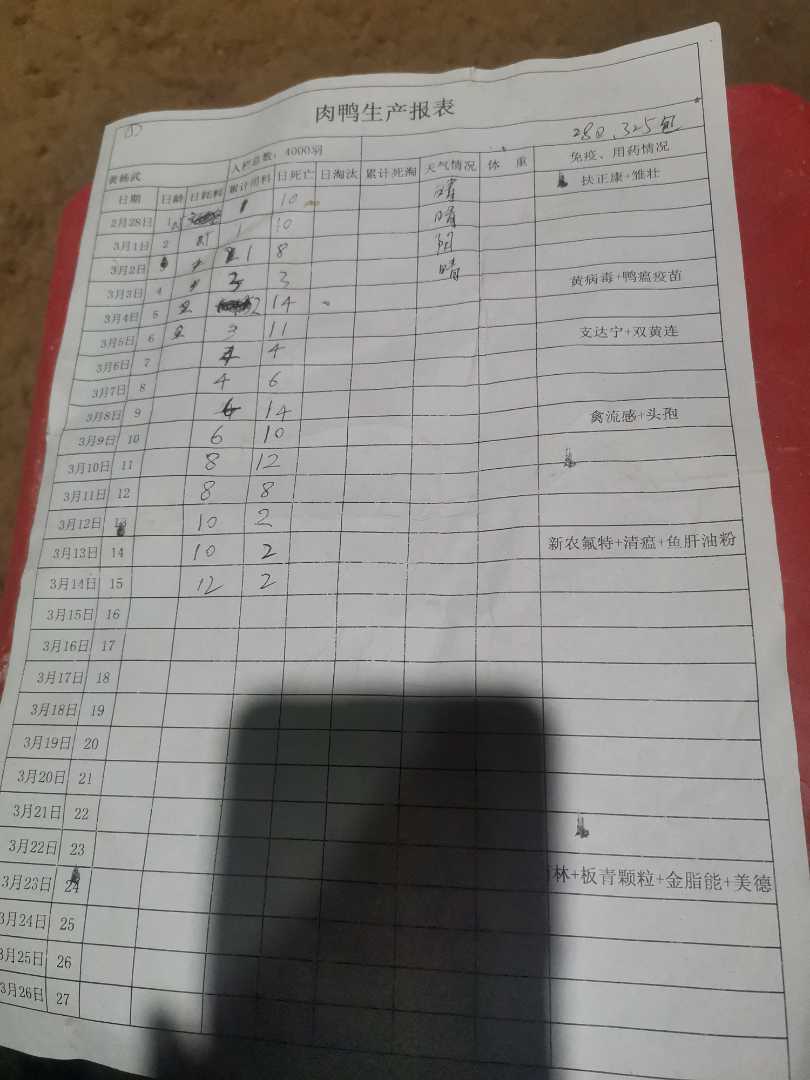 肉鸭生产报表
黄杨武 入栏总数：4000羽 280.325包
日期 日龄 日耗料 累计用料 日死亡 日淘汰 累计死淘 天气情况 体 重 免疫、用药情况
2月28日 1 1 10 晴 扶正康+雏壮
3月1日 2 1 10 晴
3月2日 1 8 阴
3月3日 4 3 3 晴 黄病毒+鸭瘟疫苗
3月4日 5 2 14
3月5日 6 3 11 支达宁+双黄连
3月6日 7 4 4
3月7日 8 4 6
3月8日 9 6 14 禽流感+头孢
3月9日 10 6 10
3月10日 11 8 12
3月11日 12 8 8
3月12日 13 10 2
3月13日 14 10 2 新农氟特+清瘟+鱼肝油粉
3月14日 15 12 2
3月15日 16
3月16日 17
3月17日 18
3月18日 19
3月19日 20
3月20日 21
3月21日 22
3月22日 23
3月23日 24 林+板青颗粒+金脂能+美德
3月24日 25
3月25日 26
3月26日 27